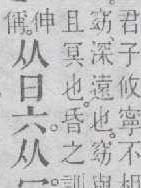 君子攸寧不
窈深遠也。窈與
且冥也。昏之訓
伸
从日六。从